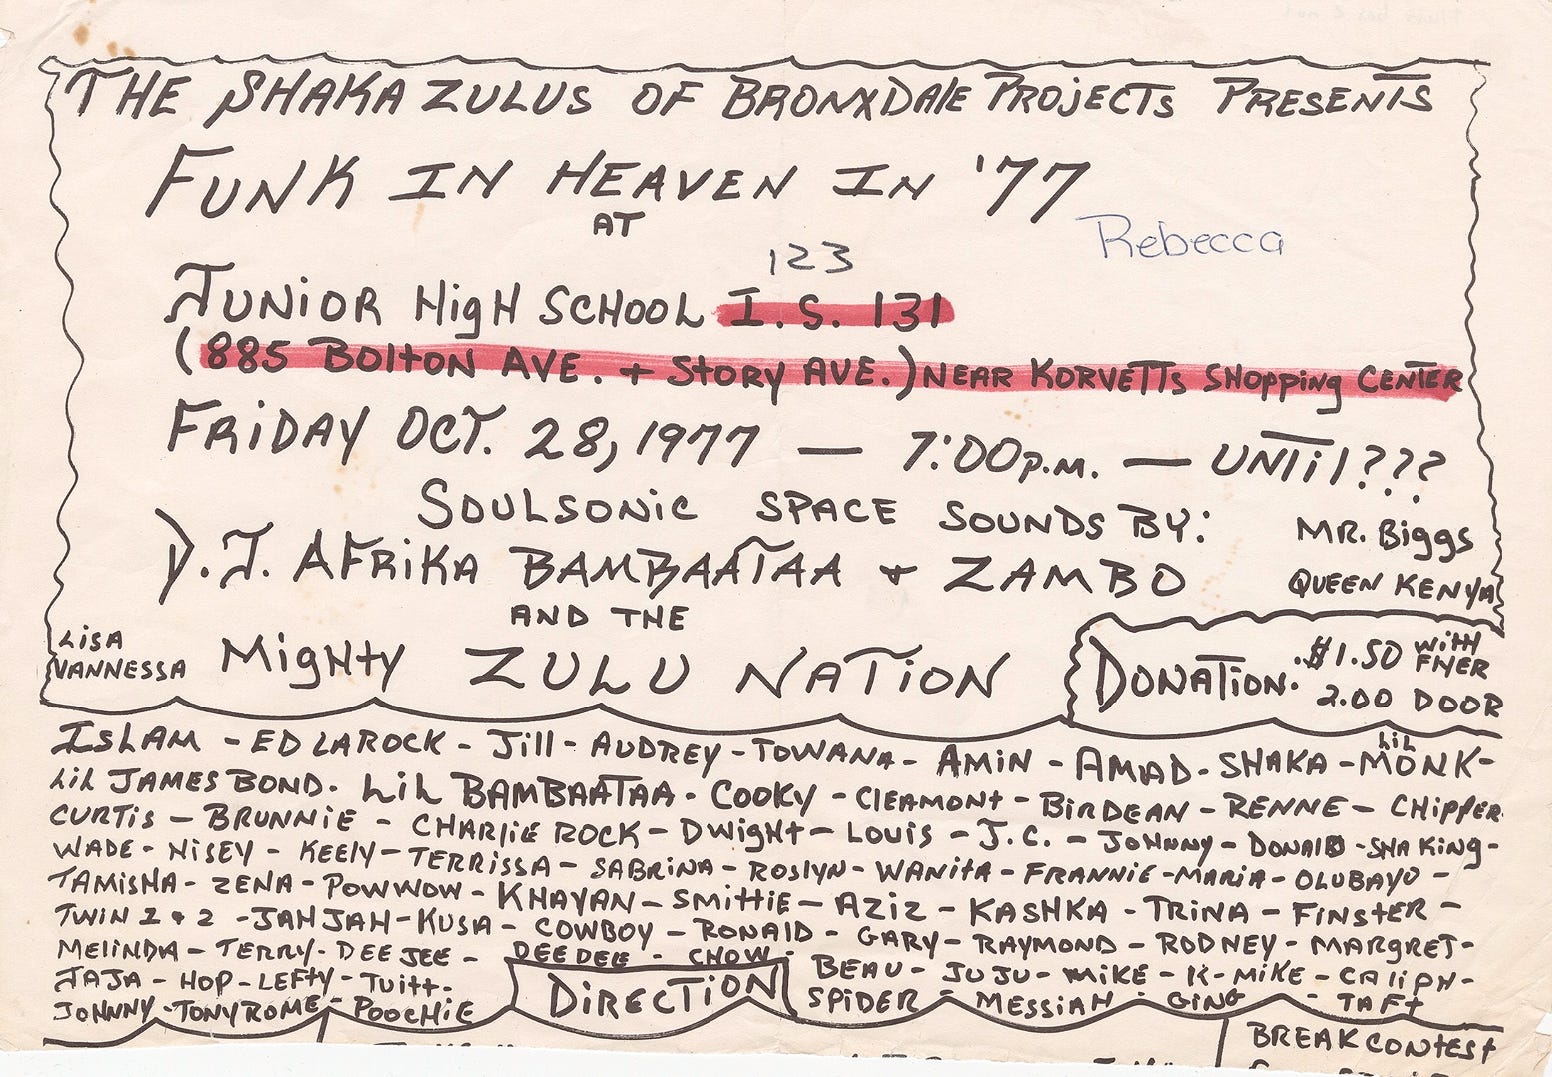 THE SHAKA ZULUS OF BRONXDALE PROJECTS PRESENTS
FUNK IN HEAVEN IN '77
AT
Rebecca
123
JUNIOR HIGH SCHOOL I.S. 131
(885 BOLTON AVE. + STORY AVE.) NEAR KORVETTS SHOPPING CENTER
FRIDAY OCT. 28, 1977 — 7:00 P.M. — UNTIL???
SOULSONIC SPACE SOUNDS BY:
MR. BIGGS
QUEEN KENYA
D.J. AFRIKA BAMBAATAA + ZAMBO
AND THE
LISA
VANNESSA
MIGHTY ZULU NATION
DONATION. $1.50 WITH FLYER
2.00 DOOR
ISLAM - ED LAROCK - JILL - AUDREY - TOWANA - AMIN - AMAD - SHAKA - LIL MONK -
LIL JAMES BOND. LIL BAMBAATAA - COOKY - CLEAMONT - BIRDEAN - RENNE - CHIPPER
CURTIS - BRUNNIE - CHARLIE ROCK - DWIGHT - LOUIS - J.C. - JOHNNY - DONALD - SHA KING -
WADE - NISEY - KEELY - TERRISSA - SABRINA - ROSLYN - WANITA - FRANNIE - MARIA - OLUBAYO -
TAMISHA - ZENA - POWWOW - KHAYAN - SMITTIE - AZIZ - KASHKA - TRINA - FINSTER -
TWIN 1 + 2 - JAHJAH - KUSA - COWBOY - RONALD - GARY - RAYMOND - RODNEY - MARGRET -
MELINDA - TERRY - DEE JEE - DEE DEE - CHOW - BEAU - JUJU - MIKE - K-MIKE - CALIPH -
JAJA - HOP - LEFTY - TUITT - SPIDER - MESSIAH - GING - TAFT
JOHNNY - TONY ROME - POOCHIE
DIRECTION
BREAK CONTEST